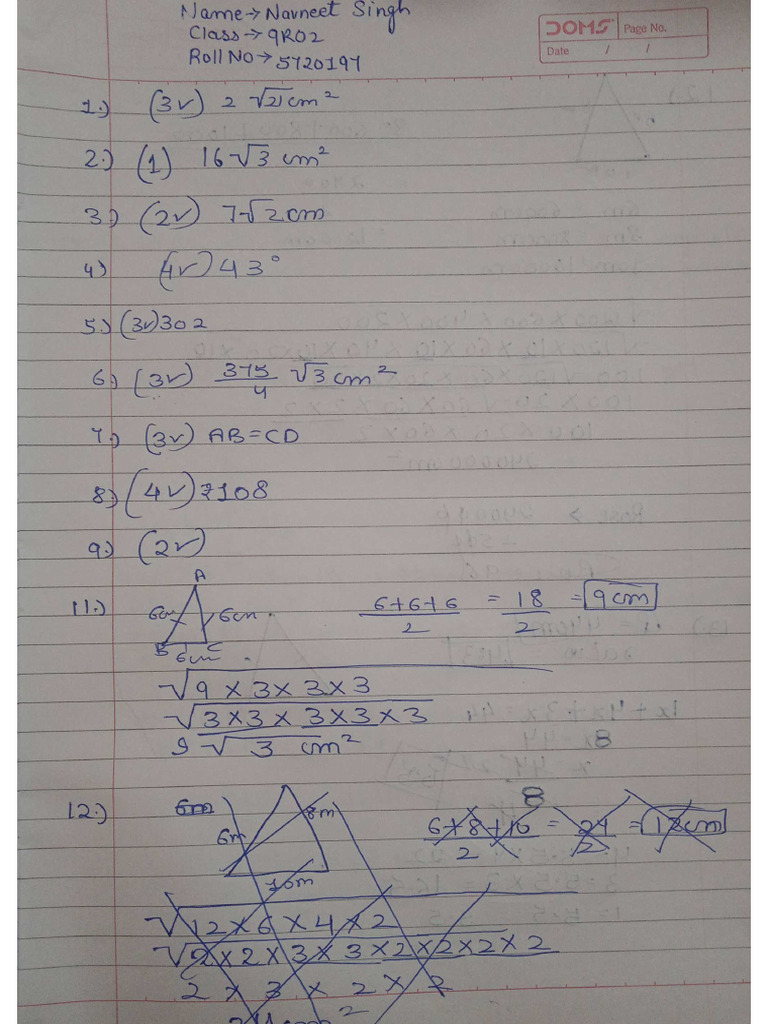 Name→Navneet Singh
Class→9R02
Roll No→5720197
DOMS Page No.
Date / /
1.) (3✓) 2 √21cm²
2.) (1) 16√3 cm²
3.) (2✓) 7√2cm
4.) (4✓) 43°
5.) (3✓) 302
6.) (3✓) 375/4 √3cm²
7.) (3✓) AB=CD
8.) (4✓) ₹108
9.) (2✓)
11.) A 6cm 6cm B C 6cm 6+6+6/2 = 18/2 = 9cm
√9×3×3×3
√3×3×3×3×3
9√3 cm²
12.) 6m 8m 10m
√12×6×4×2
√2×2×3×3×2×2×2×2
2×3×2×2